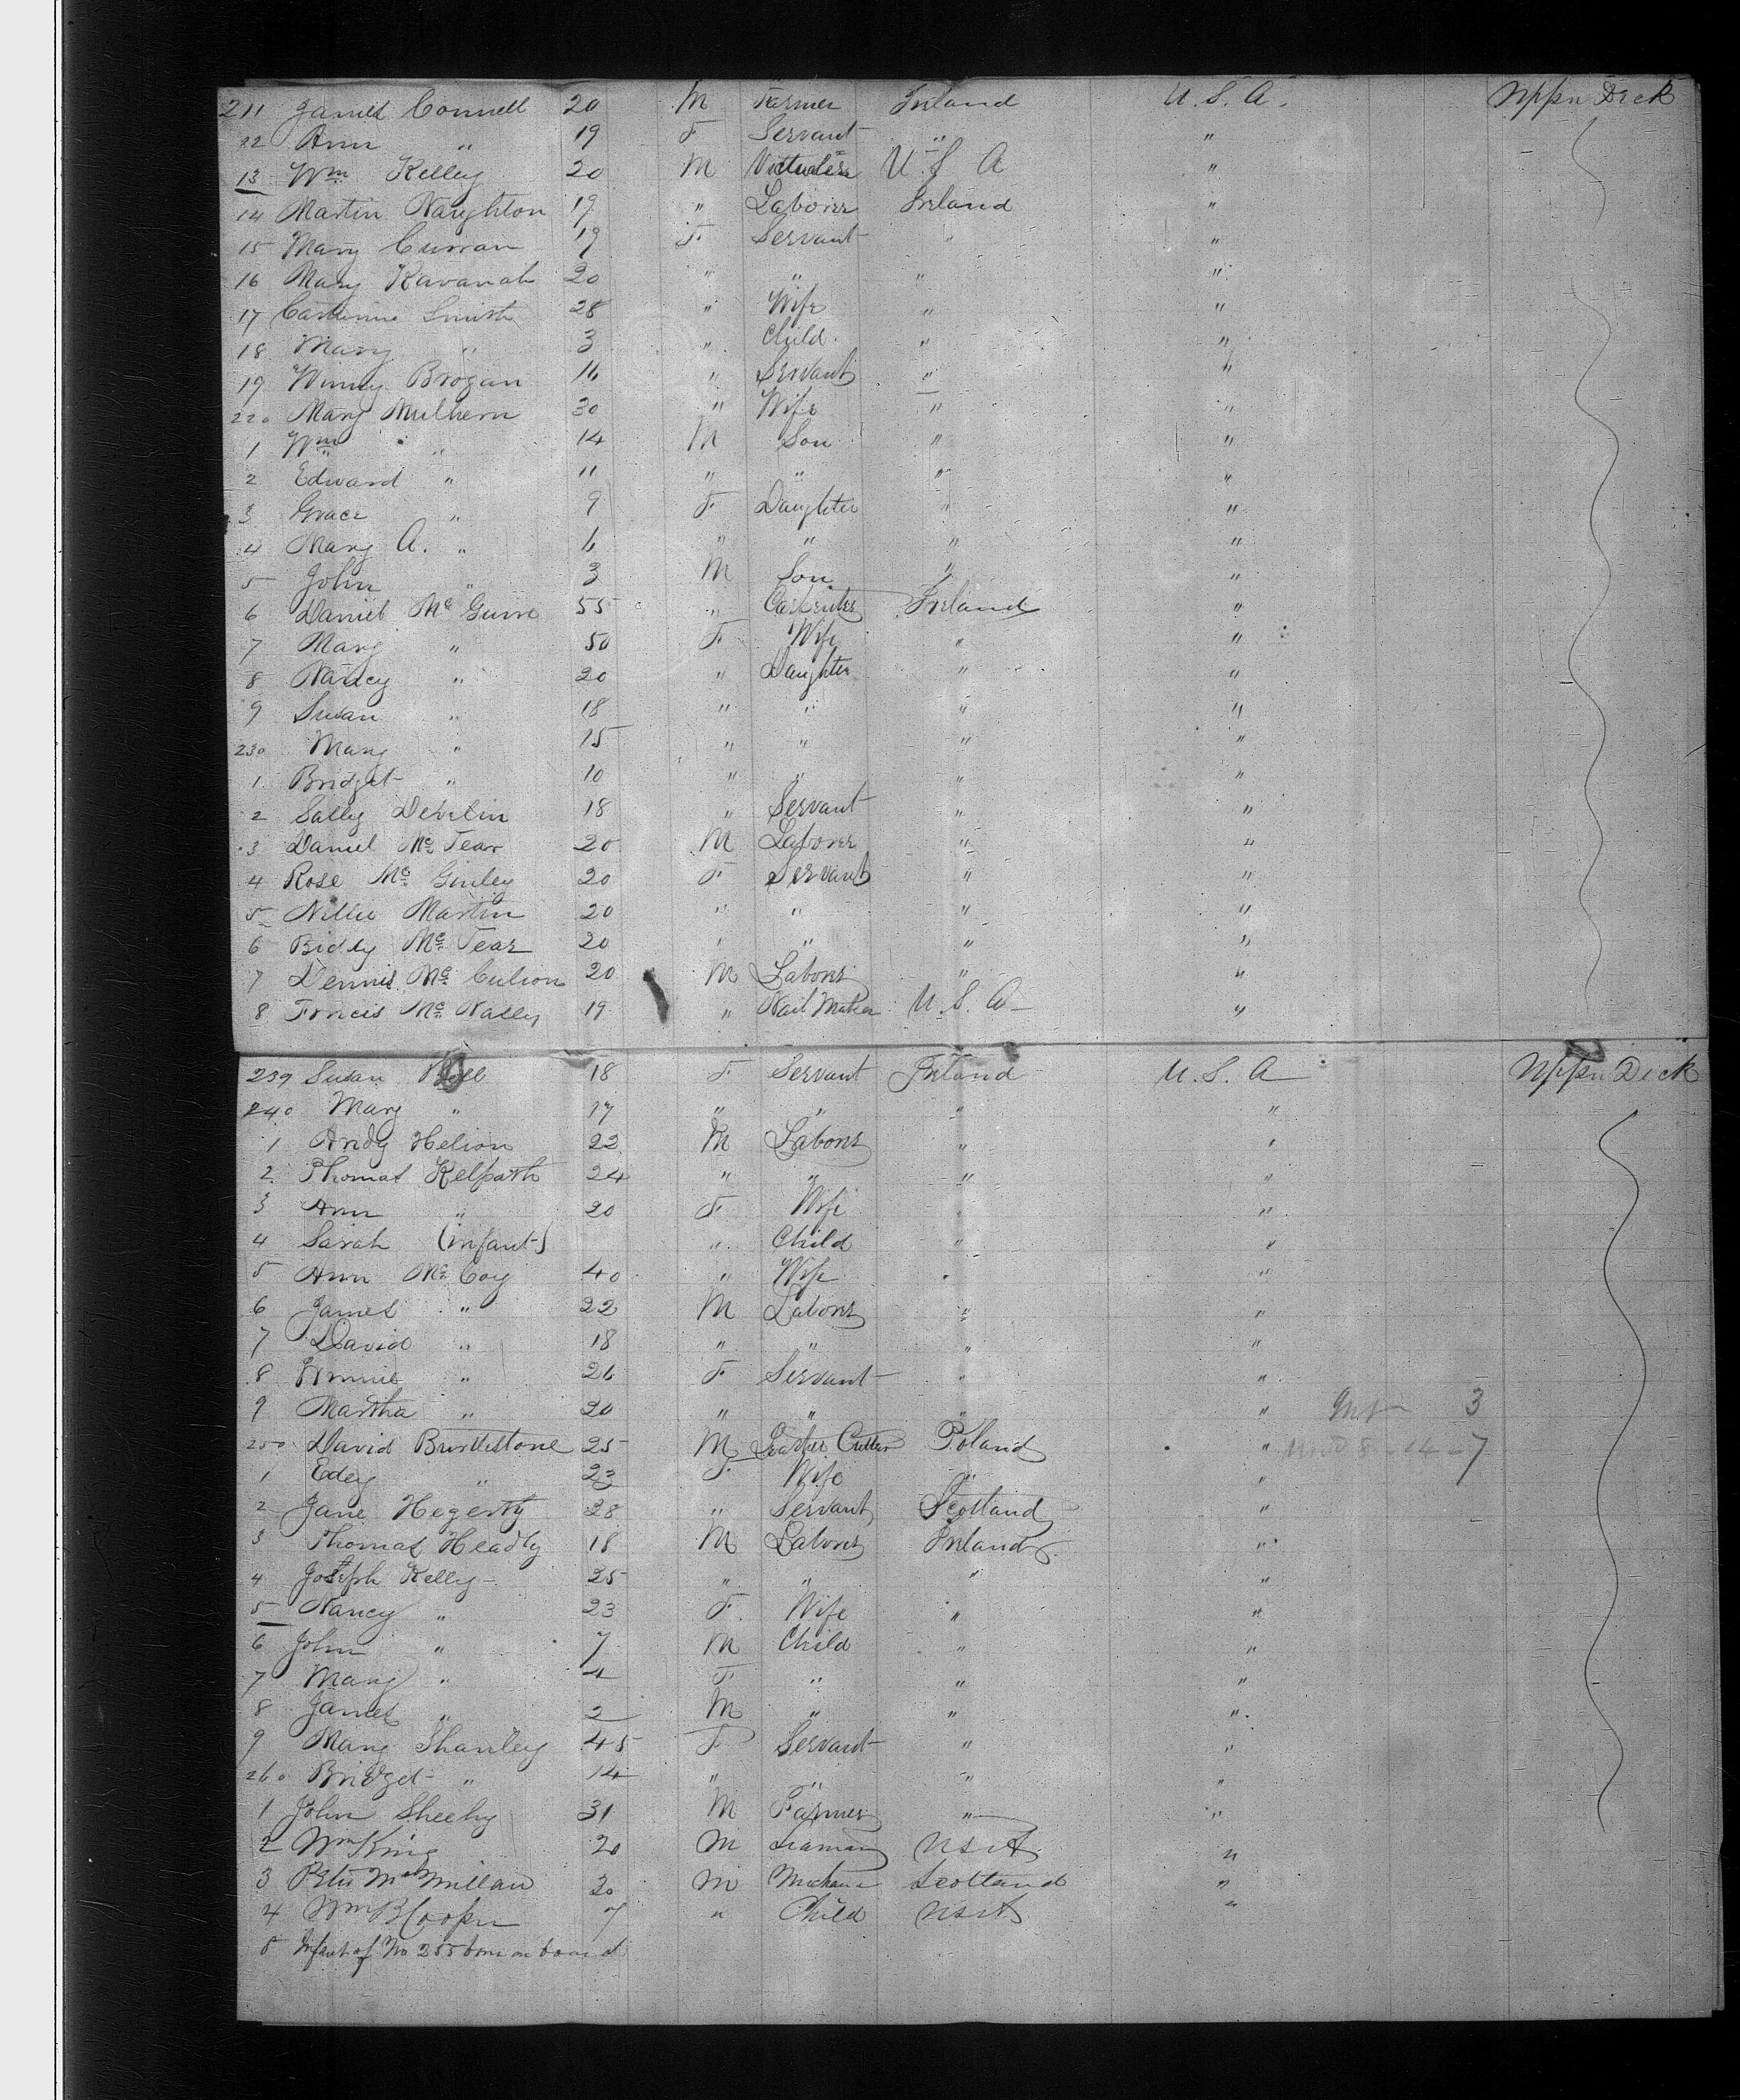 211 James Connell 20 M Farmer Ireland U.S.A. Upper Deck
22 Ann " 19 F Servant " "
13 Wm Kelley 20 M Victualer U S A "
14 Martin Naughton 19 " Laborer Ireland "
15 Mary Curran 19 F Servant " "
16 Mary Kavanah 20 " " " "
17 Catherine Smith 28 " Wife " "
18 Mary " 3 " Child " "
19 Winny Brogan 16 " Servant " "
220 Mary Mulhern 30 " Wife " "
1 Wm " 14 M Son " "
2 Edward " 11 " " " "
3 Grace " 9 F Daughter " "
4 Mary A. " 6 " " " "
5 John " 3 M Son " "
6 Daniel Mc 55 " Carpenter Ireland "
7 Mary " 50 F Wife " "
8 Nancy " 20 " Daughter " "
9 Susan " 18 " " " "
230 Mary " 15 " " " "
1 Bridget " 10 " " " "
2 Sally Develin 18 " Servant " "
3 Daniel Mc Tear 20 M Laborer " "
4 Rose Mc Ginley 20 F Servant " "
5 Nellie Martin 20 " " " "
6 Bidly Mc Tear 20 " " " "
7 Dennis Mc 20 M Laborer " "
8 Francis Mc Nally 19 " Nail Maker U.S.A "
239 Susan 18 F Servant Ireland U.S.A Upper Deck
240 Mary " 17 " " " "
1 Andy Helion 22 M Laborer " "
2 Thomas Kelpath 24 " " " "
3 Ann " 20 F Wife " "
4 Sarah (infant) " Child " "
5 Ann Mc Coy 40 " Wife " "
6 James " 22 M Laborer " "
7 David " 18 " " " "
8 Annie " 26 F Servant " "
9 Martha " 20 " " " " 3
250 David Brittlestone 25 M Cutter Poland " 8-14-7
1 Edey " 23 F Wife " "
2 Jane Hegerty 28 " Servant Scotland "
3 Thomas Headly 18 M Laborer Ireland "
4 Joseph Kelly 25 " " " "
5 Nancy " 23 F Wife " "
6 John " 7 M Child " "
7 Mary " 4 F " " "
8 James " 2 M " " "
9 Mary Shanley 45 F Servant " "
260 Bridget " 14 " " " "
1 John Sheehy 31 M Farmer " "
2 Wm King 20 M Seaman USA "
3 Peter McMillan 30 M Mechanic Scotland "
4 Wm B Cooper 7 " Child USA "
5 Infant of No 255 born on board